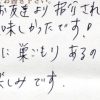 お友達より紹介され
味しかったです。
に巣ごもりあるの
楽しみです。